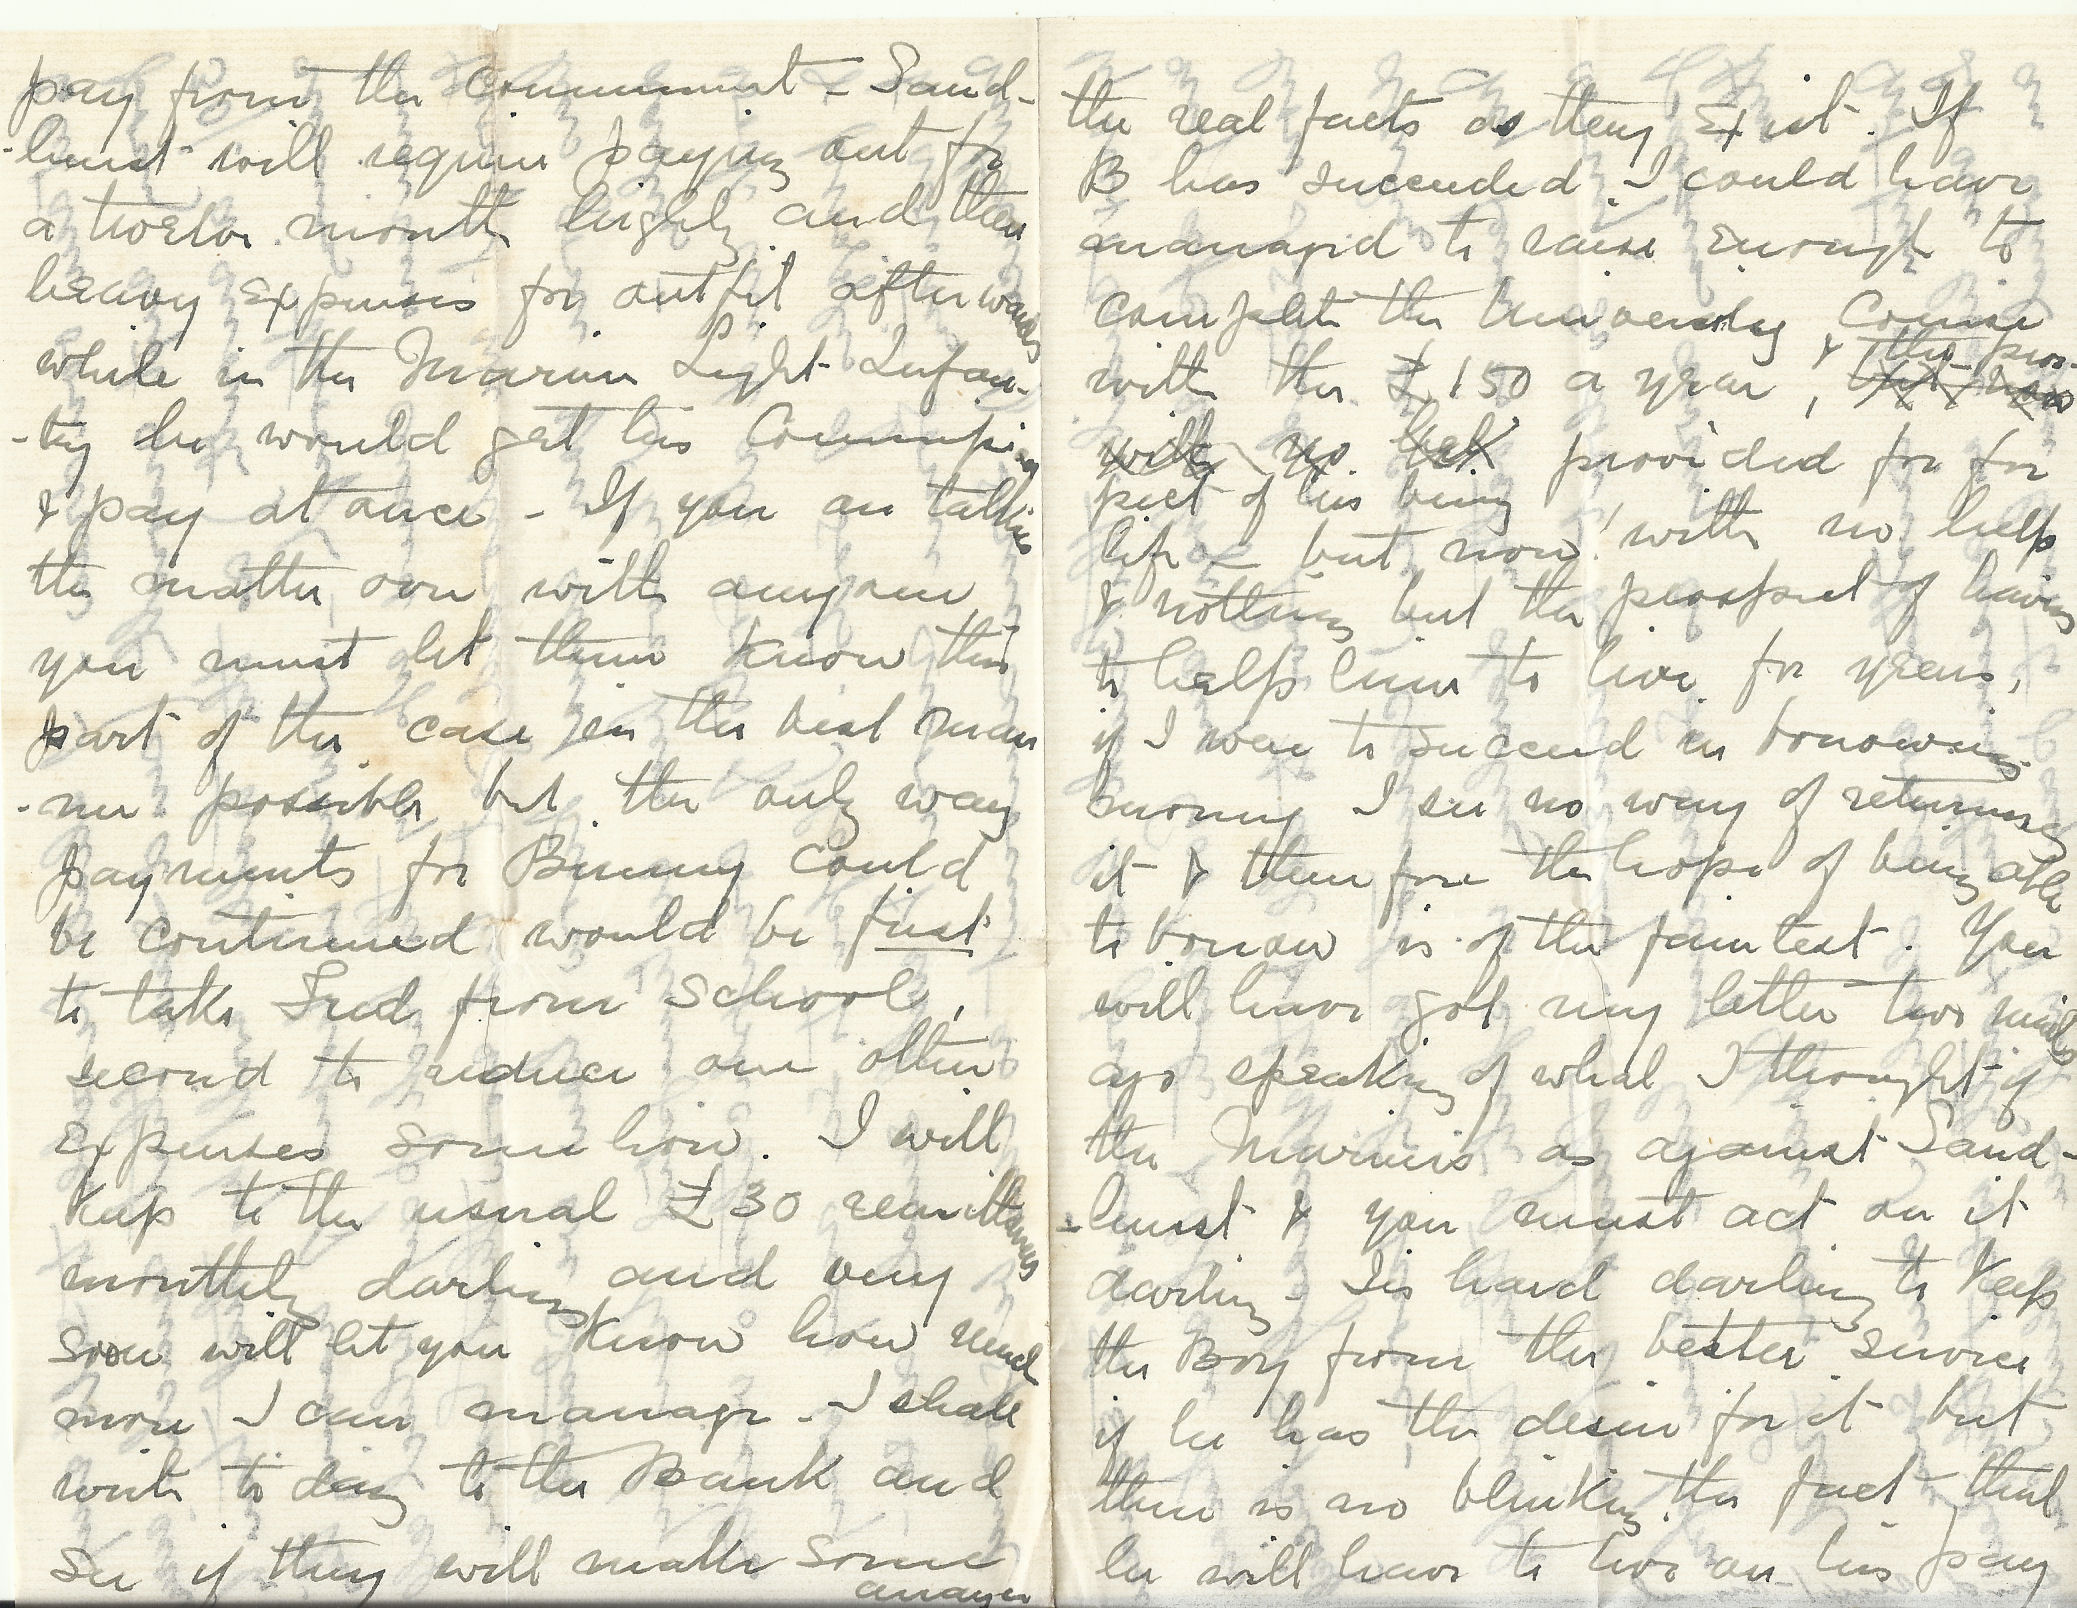 pay from the commencemt - Sand-
-hurst will require paying out for
a twelve month highly and then
heavy expenses for outfit afterwards
while in the Marine Light Infan-
-try he would get his Commission
& pay at once - If you are talking
the matter over with anyone
you must let them know this
part of the case in the best man
-ner possible but the only way
payments for Binny could
be continued would be first
to take Fred from School,
second to reduce our other
expenses some how. I will
keep to the usual £30 remittances
monthly darling and very
soon will let you know how much
more I can manage - I shall
write to day to the Bank and
see if they will make some
arrange

the real facts as they exist. If
B has succeeded I could have
managed to raise enough to
complete the University Course
with the £150 a year, & the pros-
but now
with no help provided for for
pect of his being
life - but now! with no help
& nothing but the prospect of having
to help him to live for years,
if I were to succeed in borrowing
money I see no way of returning
it & therefore the hope of being able
to borrow is of the faintest. You
will have got my letter two mails
ago speaking of what I thought of
the Marines as against Sand-
-hurst & you must act on it
darling - Tis hard darling to keep
the Boy from the better service
if he has the desire for it but
there is no blinking the fact that
he will have to live on his pay